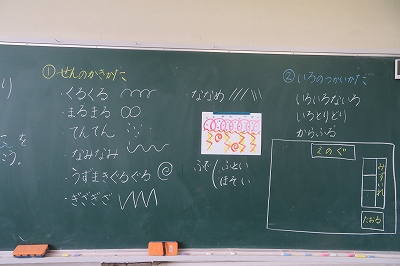 り
こを
う。
①せんのかきかた
・くるくる
・まるまる
・てんてん
・なみなみ
・うずまきぐるぐる
・ぎざぎざ
ななめ
ふで
ふとい
ほそい
②いろのつかいかた
いろいろないろ
いろとりどり
からふる
えのぐ
みずいれ
たおる